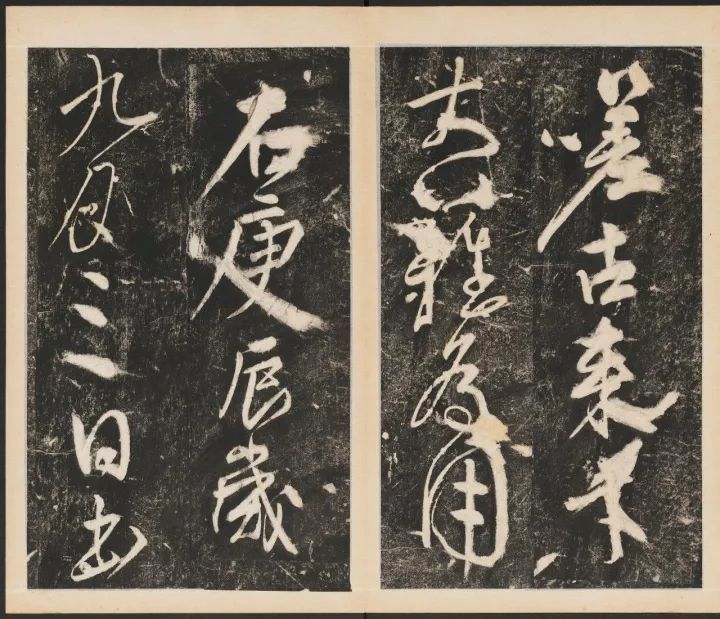 嗟古來材
大難為用
右庚辰歲
九月三日書